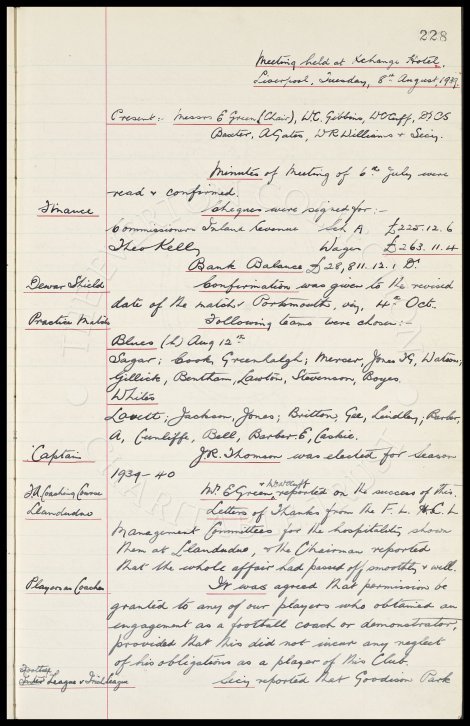 228
Meeting held at Exchange Hotel,
Liverpool, Tuesday, 8th August, 1939.
Present:- Messrs E Green (Chair), W.C. Gibbins, W C Cuff, Dr C S
Baxter, A Gates, W R Williams & Secy.
Minutes of Meeting of 6th July were
read & confirmed.
Finance
Cheques were signed for:-
Commissioners Inland Revenue Sch A £225.12.6
Theo Kelly Wages £263.11.4
Bank Balance £28,811.12.1 Dr.
Dewar Shield
Confirmation was given to the revised
date of the match v Portsmouth, viz, 4th Oct.
Practice Match
Following teams were chosen:-
Blues (h) Aug 12th
Sagar; Cook, Greenhalgh; Mercer, Jones TG, Watson;
Gillick, Bentham, Lawton, Stevenson, Boyes.
Whites
Lovett; Jackson, Jones; Britton, Gee, Lindley; Barber,
A, Cunliffe, Bell, Barber E, Caskie.
Captain
J.R. Thomson was elected for Season
1939-40
F.A Coaching Course
Llandudno
Mr E Green & W C Cuff reported on the success of this.
Letters of Thanks from the F. L. & C. L
Management Committees for the hospitality shown
them at Llandudno, & the Chairman reported
that the whole affair had passed off smoothly & well.
Players as Coaches
It was agreed that permission be
granted to any of our players who obtained an
engagement as a football coach or demonstrator,
provided that this did not incur any neglect
of his obligations as a player of this Club.
Football
League & Irish League
Secy reported that Goodison Park